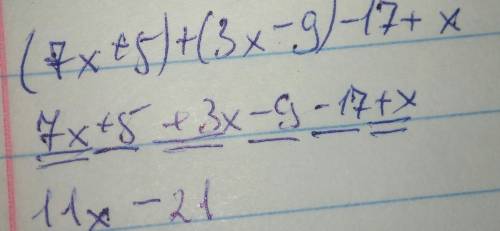 (7x+5)+(3x-9)-17+x
7x+5+3x-9-17+x
11x-21